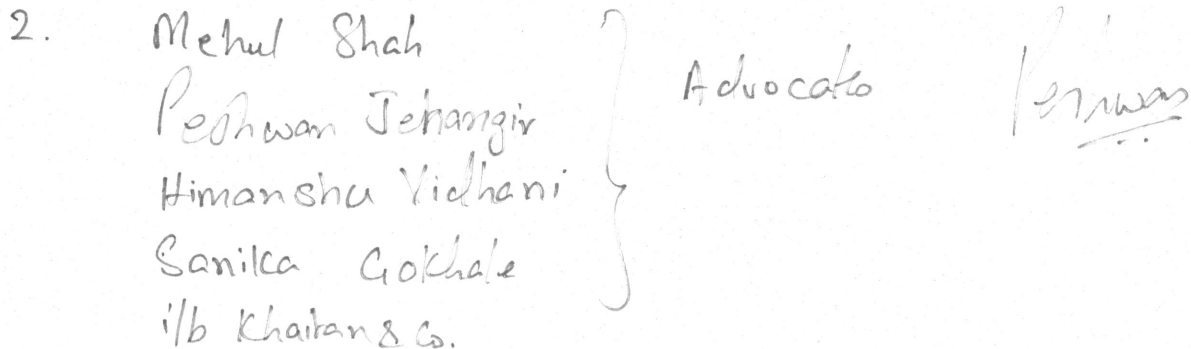 2. Mehul Shah
Peshwan Jehangir
Himanshu Vidhani
Sanika Gokhale
i/b Khaitan & Co.
Advocates
Peshwan